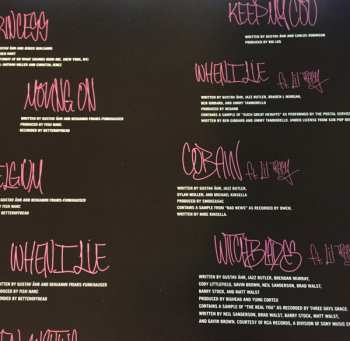 PRINCESS
GUSTAV ÅHR AND
MOVING ON
WRITTEN BY GUSTAV ÅHR AND BENJAMIN FRIARS-FUNKHAUSER
PRODUCED BY FISH NARC
RECORDED BY BETTEROFFDEAD
BELGIUM
GUSTAV ÅHR AND BENJAMIN FRIARS-FUNKHAUSER
PRODUCED BY FISH NARC
BY BETTEROFFDEAD
WHEN I LIE
BY GUSTAV ÅHR AND BENJAMIN FRIARS-FUNKHAUSER
PRODUCED BY FISH NARC
RECORDED BY BETTEROFFDEAD
KEEPING COO
WRITTEN BY GUSTAV ÅHR AND CARLOS ROBINSON
PRODUCED BY
WHEN I LIE ft. lil tracy
WRITTEN BY GUSTAV ÅHR, JAZZ BUTLER, BRENDEN J. MURRAY,
BEN GIBBARD, AND JIMMY TAMBORELLO
PRODUCED BY BIGHEAD
CONTAINS A SAMPLE OF "SUCH GREAT HEIGHTS" AS PERFORMED BY THE POSTAL SERVICE
WRITTEN BY BEN GIBBARD AND JIMMY TAMBORELLO. UNDER LICENSE FROM SUB POP
COBAIN ft. lil tracy
WRITTEN BY GUSTAV ÅHR, JAZZ BUTLER,
DYLAN MULLEN, AND MICHAEL KINSELLA
PRODUCED BY SMOKEASAC
CONTAINS A SAMPLE FROM "BAD NEWS" AS RECORDED BY OWEN.
WRITTEN BY MIKE KINSELLA.
WITCHBLADES ft. lil
WRITTEN BY GUSTAV ÅHR, JAZZ BUTLER, BRENDAN MURRAY,
CODY LITTLEFIELD, GAVIN BROWN, NEIL SANDERSON, BRAD WALST,
BARRY STOCK, AND MATT WALST
PRODUCED BY BIGHEAD AND YUNG CORTEX
CONTAINS A SAMPLE OF "THE REAL YOU" AS RECORDED BY THREE DAYS GRACE.
WRITTEN BY NEIL SANDERSON, BRAD WALST, BARRY STOCK, MATT WALST,
AND GAVIN BROWN. COURTESY OF RCA RECORDS, A DIVISION OF SONY MUSIC